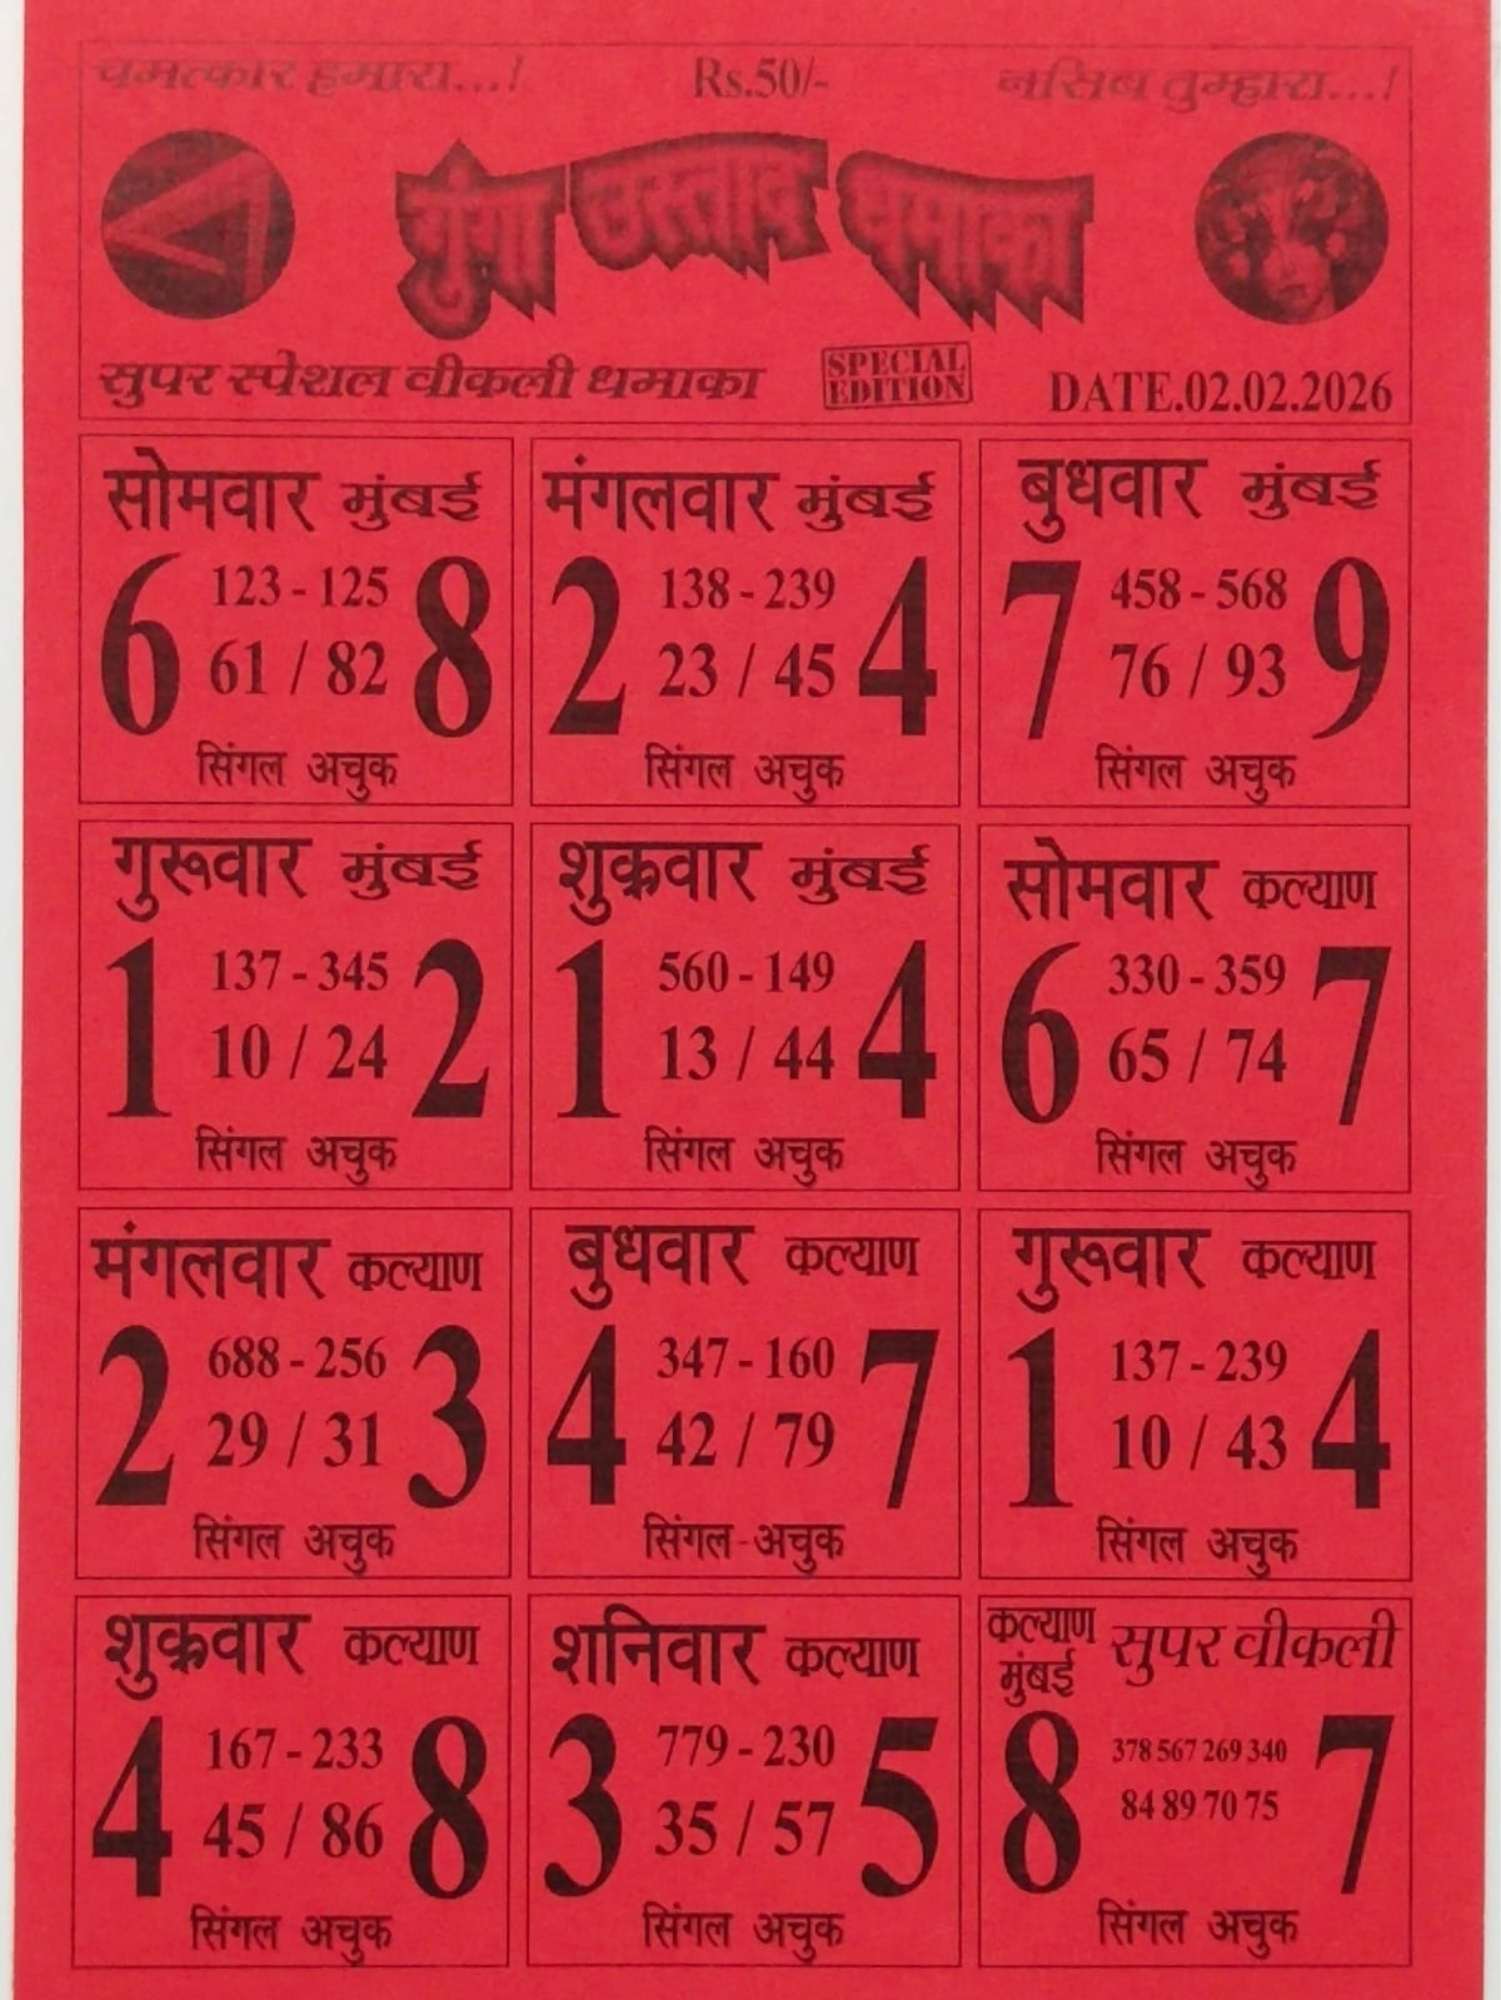 चमत्कार हमारा...! Rs.50/- नसिब तुम्हारा...!
गुंगा उस्ताद धमाका
सुपर स्पेशल वीकली धमाका SPECIAL EDITION DATE.02.02.2026
सोमवार मुंबई
6 123 - 125 8
61 / 82
सिंगल अचुक
मंगलवार मुंबई
2 138 - 239 4
23 / 45
सिंगल अचुक
बुधवार मुंबई
7 458 - 568 9
76 / 93
सिंगल अचुक
गुरूवार मुंबई
1 137 - 345 2
10 / 24
सिंगल अचुक
शुक्रवार मुंबई
1 560 - 149 4
13 / 44
सिंगल अचुक
सोमवार कल्याण
6 330 - 359 7
65 / 74
सिंगल अचुक
मंगलवार कल्याण
2 688 - 256 3
29 / 31
सिंगल अचुक
बुधवार कल्याण
4 347 - 160 7
42 / 79
सिंगल - अचुक
गुरूवार कल्याण
1 137 - 239 4
10 / 43
सिंगल अचुक
शुक्रवार कल्याण
4 167 - 233 8
45 / 86
सिंगल अचुक
शनिवार कल्याण
3 779 - 230 5
35 / 57
सिंगल अचुक
कल्याण मुंबई सुपर वीकली
8 378 567 269 340 7
84 89 70 75
सिंगल अचुक